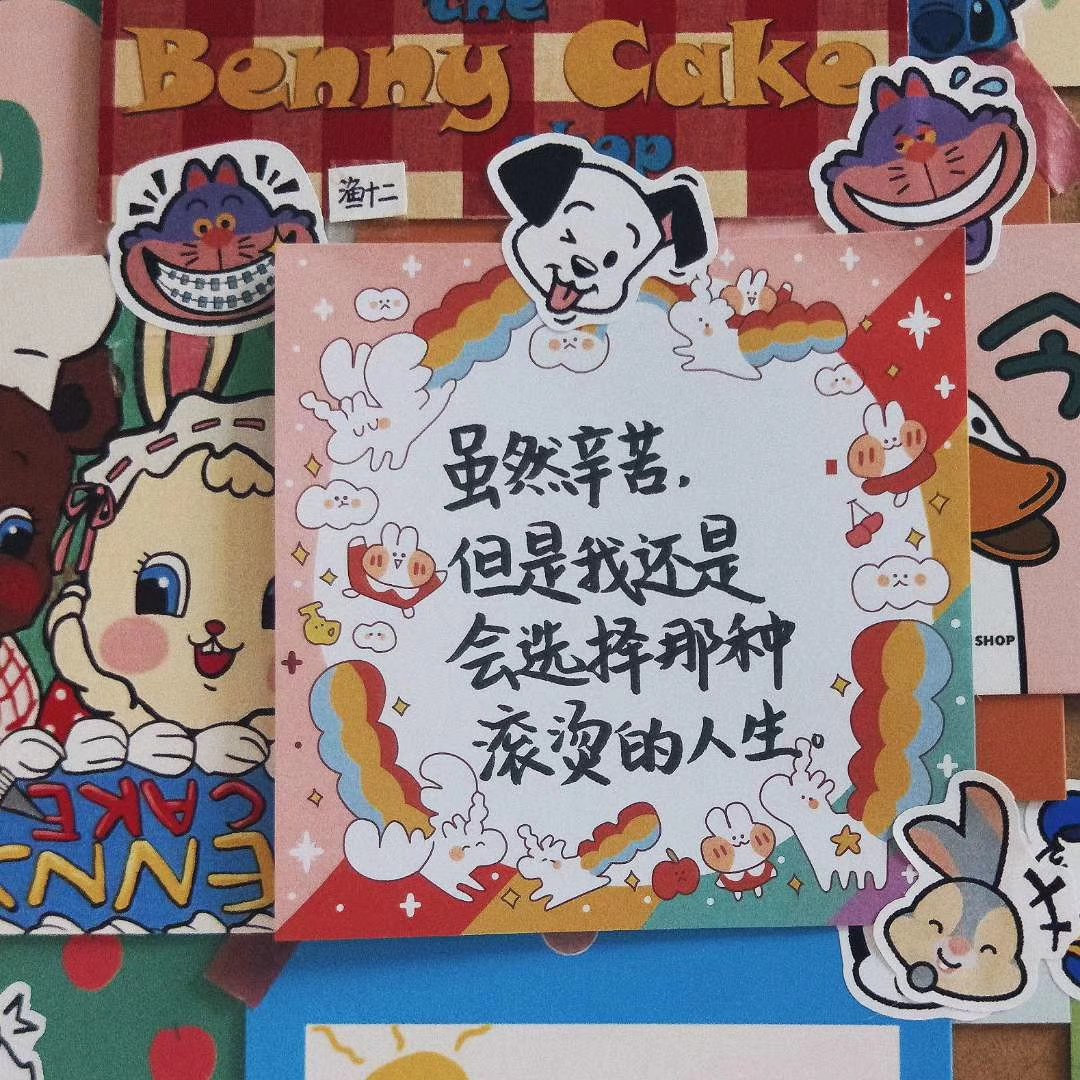 the
Benny Cake
shop
渔十二
虽然辛苦，
但是我还是
会选择那种
滚烫的人生。
SHOP
CAKE